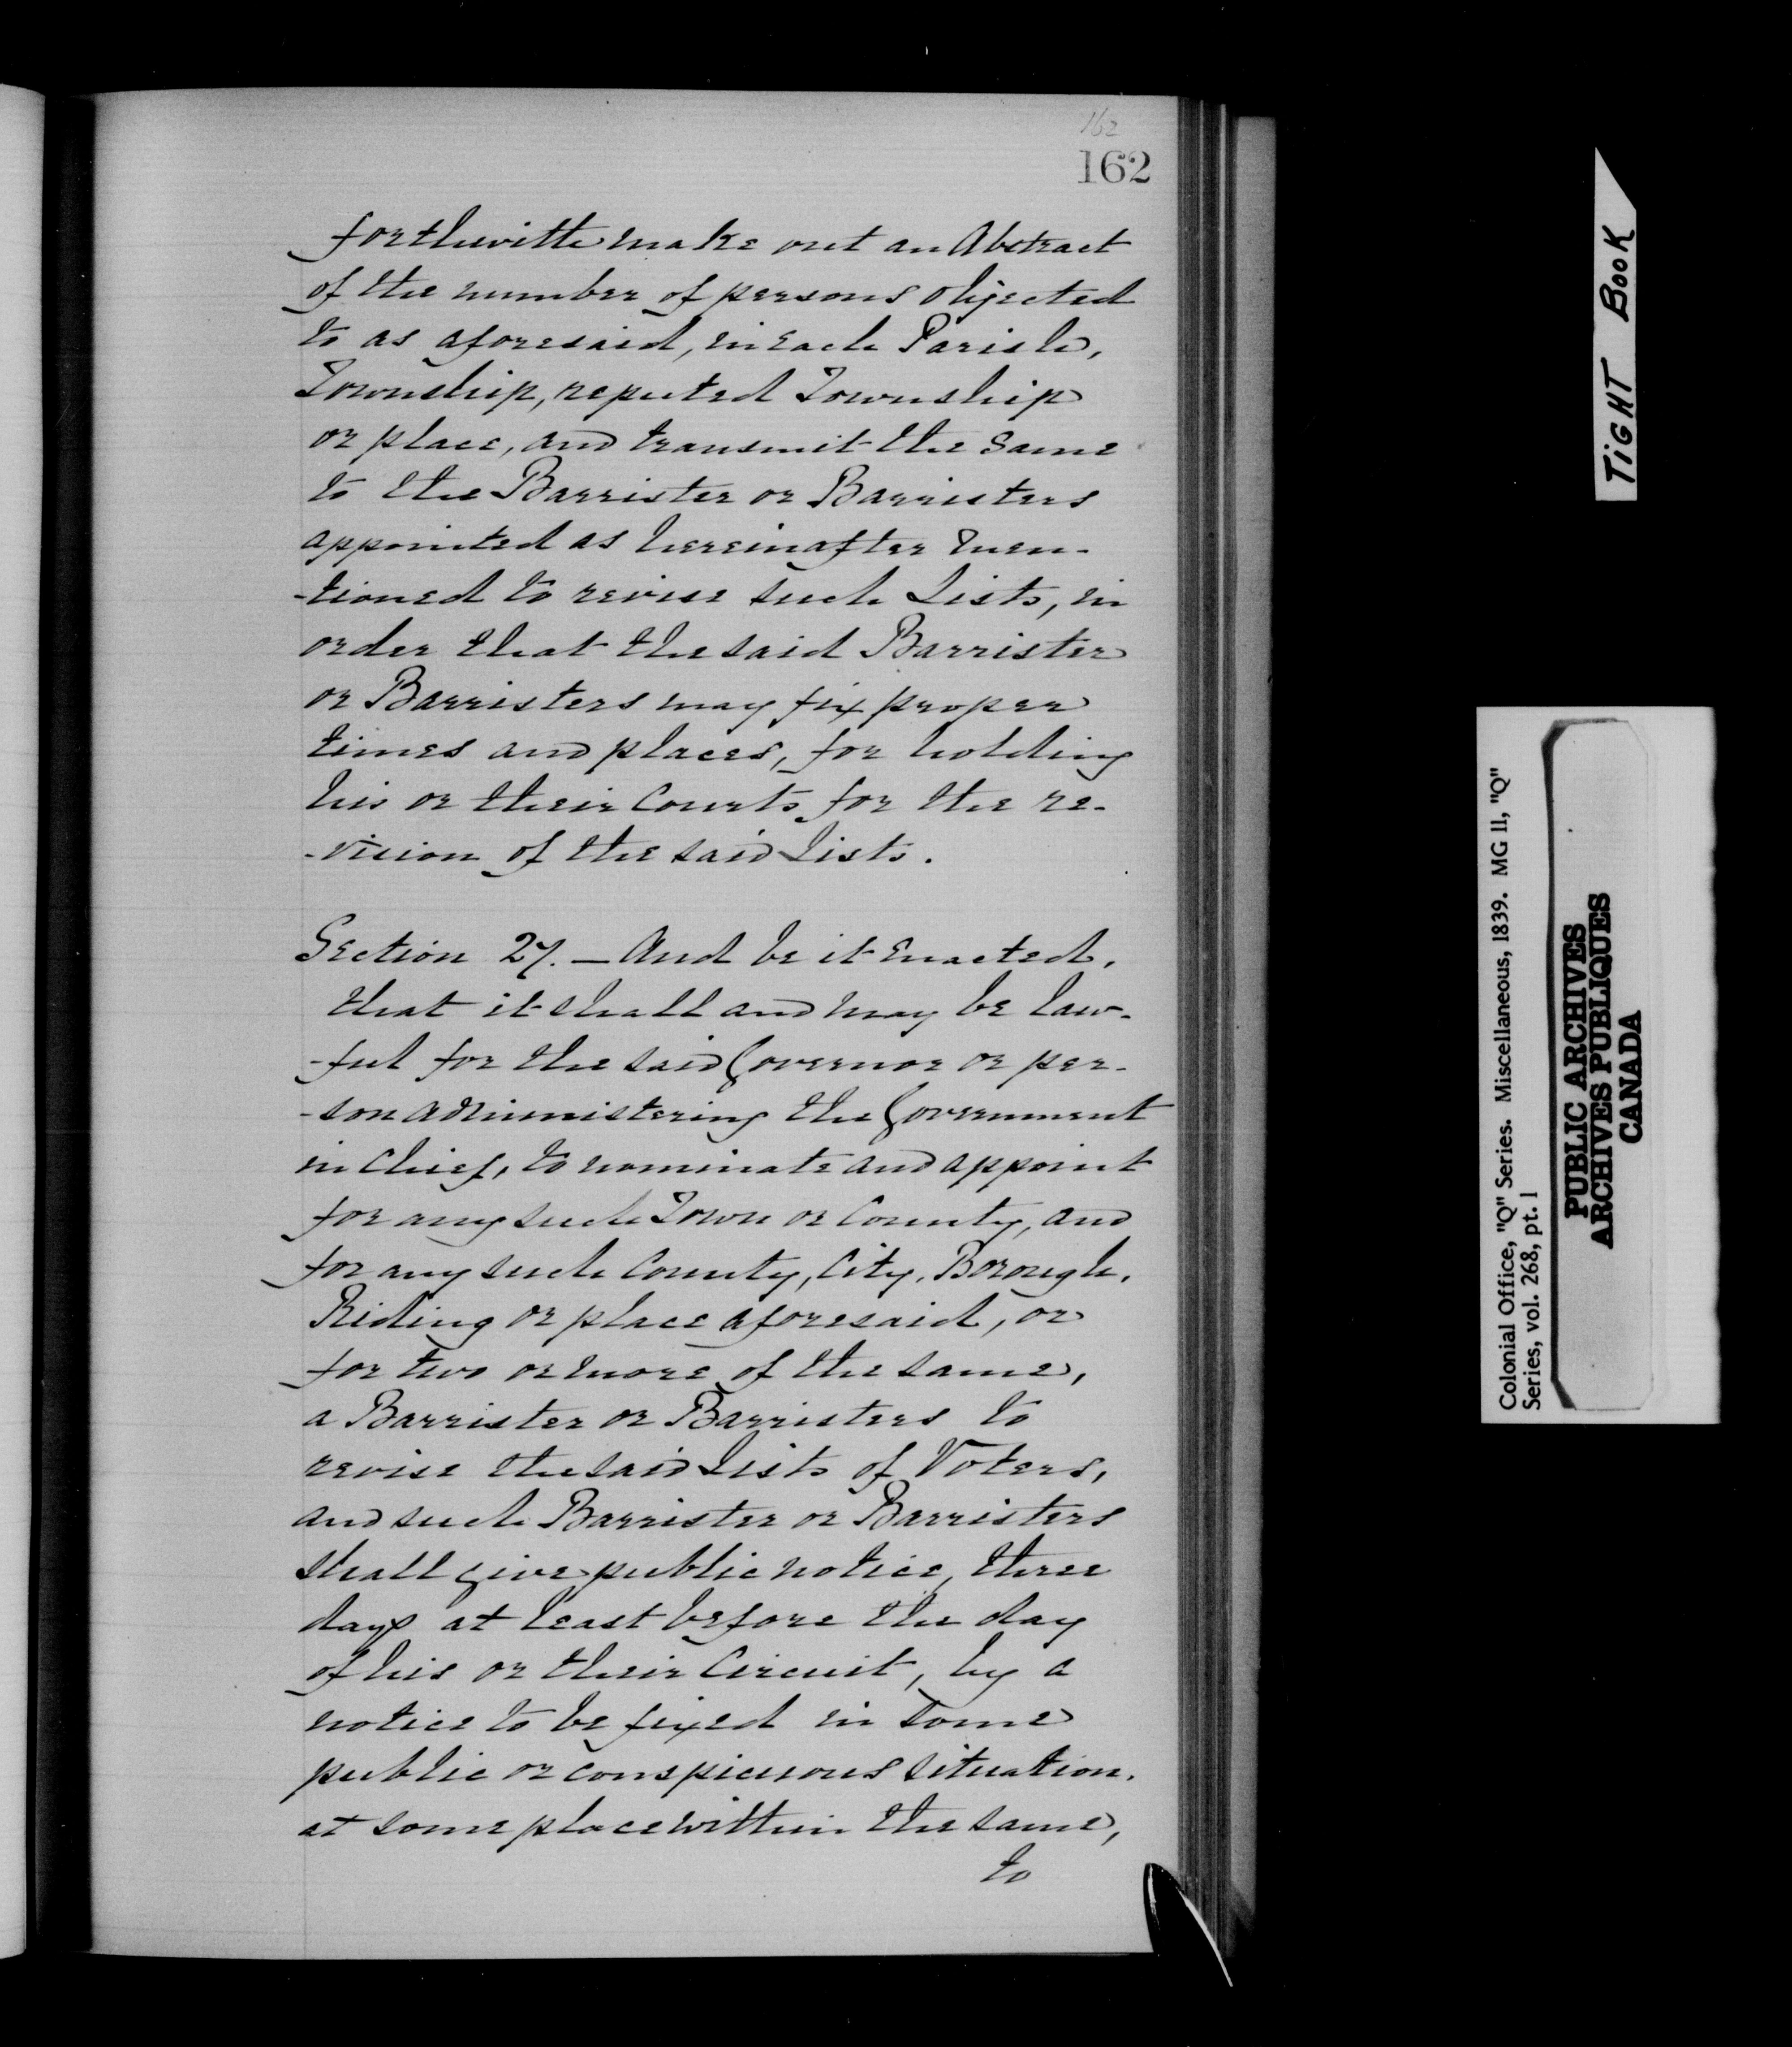 162
162
forthwith make out an Abstract
of the number of persons objected
to as aforesaid, in Each Parish,
Township, reputed Township
or place, and transmit the same
to the Barrister or Barristers
appointed as hereinafter men-
-tioned to revise such Lists, in
order that the said Barrister
or Barristers may fix proper
times and places, for holding
his or their Courts for the re-
-vision of the said Lists.
Section 27. — And be it Enacted,
that it shall and may be law-
-ful for the said Governor or per-
-son administering the Government
in Chief, to nominate and appoint
for any such Town or County, and
for any such County, City, Borough,
Riding or place aforesaid, or
for two or more of the same,
a Barrister or Barristers to
revise the said Lists of Voters,
and such Barrister or Barristers
shall give public notice, three
days at least before the day
of his or their Circuit, by a
notice to be fixed in some
public or conspicuous situation,
at some place within the same,
to
TIGHT BOOK
Colonial Office, "Q" Series. Miscellaneous, 1839. MG 11, "Q"
Series, vol. 268, pt. 1
PUBLIC ARCHIVES
ARCHIVES PUBLIQUES
CANADA